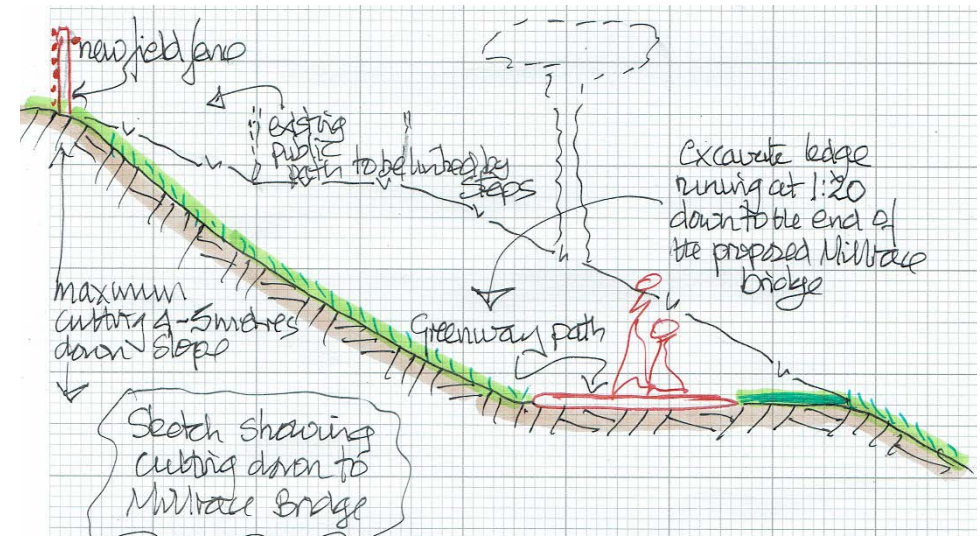 new field fence
existing
public
path to be linked by
steps
excavate ledge
running at 1:20
down to the end of
the proposed Millrace
bridge
maximum
cutting 4-5 metres
down slope
Greenway path
Sketch showing
cutting down to
Millrace Bridge